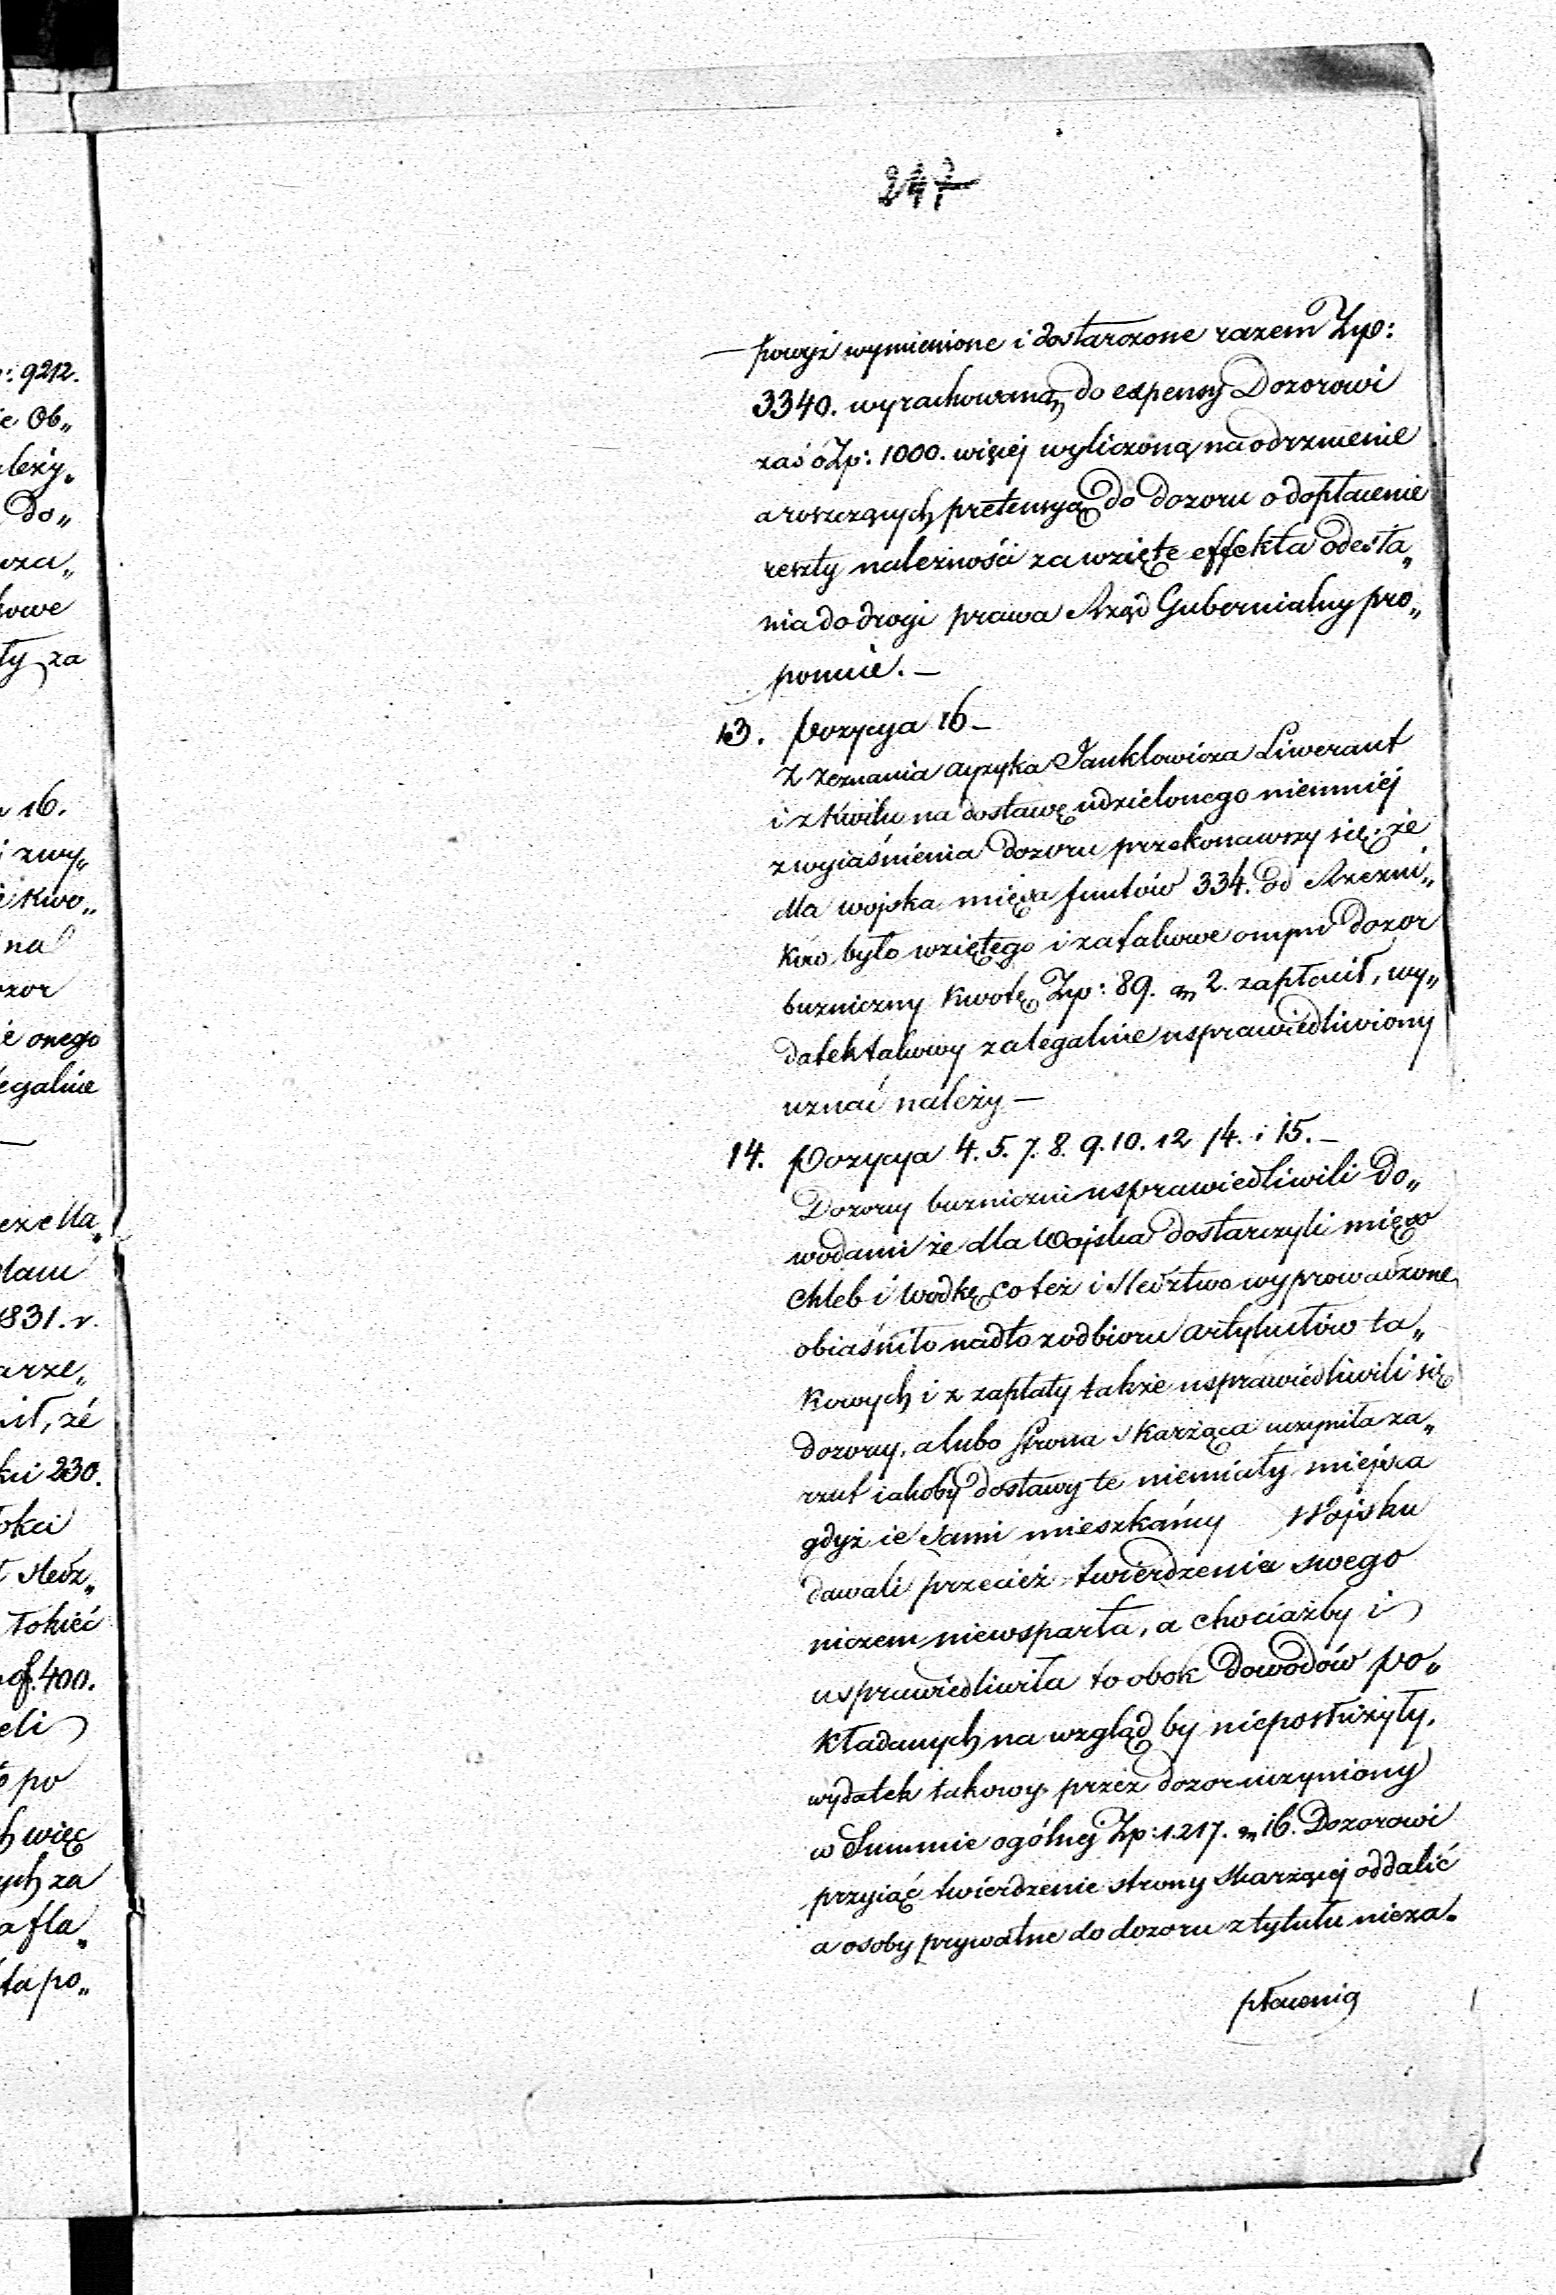 247
powyż wymienione i dostarczone razem Złp:
3340. wyrachowaną do expensy Dozorowi
zaś o Zp: 1000. więcej wyliczoną na odrzucenie
a roszczących pretensyą do dozoru o dopłacenie
reszty należności za wzięte effekta odesła„
nia do drogi prawa Rząd Gubernialny pro„
ponuie. —
13. Pozycya 16 —
Z zeznania Ayzyka Janklowicza Liwerant
i z kwitu na dostawę udzielonego niemniej
z wyiaśnienia Dozoru przekonawszy się, że
dla wojska mięsa funtów 334. od Rzezni„
ków było wziętego i za takowe onym dozor
bużniczny kwotę Zp: 89. gr 2. zapłacił, wy„
datek takowy za legalnie usprawiedliwiony
uznać należy —
14. Pozycya 4. 5. 7. 8. 9. 10. 12 14. i 15. —
Dozory bużniczni usprawiedliwili Do„
wodami że dla Wojska dostarczyli mięso
chleb i wodkę, co też i Sledztwo wyprowadzone
obiaśniło nadto z odbioru artykułów ta„
kowych i z zapłaty także usprawiedliwili się
dozory, a lubo Strona skarżąca uczyniła za„
rzut iakoby dostawy te niemiały miejsca
gdyż ie sami mieszkańcy Wojsku
dawali przecież twierdzenia swego
niczem niewsparła, a chociażby i
usprawiedliwiła to obok Dowodów po„
kładanych na wzgląd by nieposłużyły.
wydatek takowy przez dozor uczyniony
w Summie ogólnej Zp: 1.217. gr 16. Dozorowi
przyiąć twierdzenie strony skarżącej oddalić
a osoby prywatne do dozoru z tytułu nieza„
płacenia
: 9212.
ie Ob„
leży„
Do„
kowe
ty za
16.
i zwy„
kwo„
na
ozor
ie onego
legalnie
1831. r.
arze„
ił, że
230.
okci
Sledz„
łokieć
400.
eli
po
h więc
ych za
ta po„